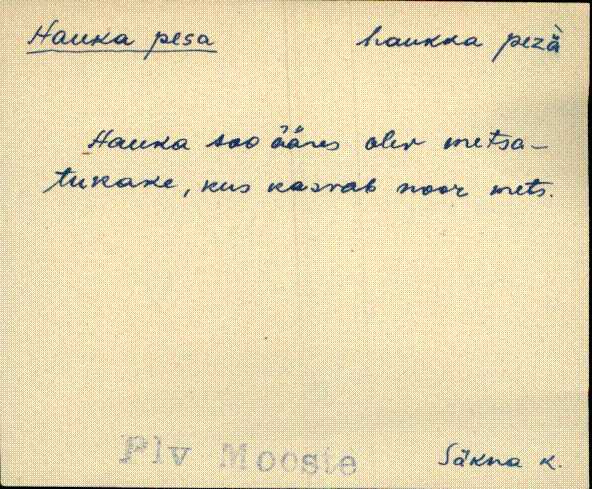 Hauka pesa haukka pezà
Hauka soo ääres olev metsa-
tukake, kus kasvab noor mets.
Plv Mooste Säkna k.